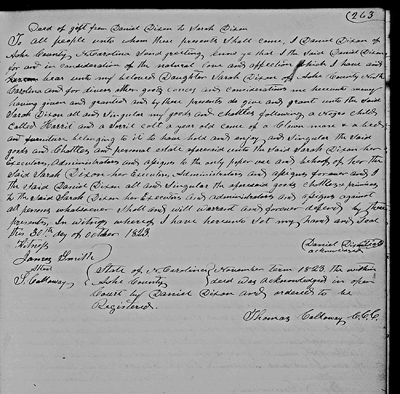 (263
Deed of gift from Daniel Dixon to Sarah Dixon
To all people unto whom these presents Shall come, I Daniel Dixon of
Ashe County, N Carolina Send greeting, know ye that I the Said Daniel Dixon
for and in consideration of the natural love and affection Which I have and
bear unto my beloved Daughter Sarah Dixon of Ashe County North
Carolina and for divers other good causes and considerations me hereunto moving
having given and granted and by these presents do give and grant unto the Said
Sarah Dixon all and Singular my goods and Chattles following, a negro child
Called Harriet and a Sorril colt a year old came of a Clown mare & a bed
and furniture belonging to it to have hold and enjoy all and Singular the Said
goods and Chattles and personal estate aforesaid unto the Said Sarah Dixon her
Executors, Administrators and assigns to the only proper use and behoof of her the
Said Sarah Dixon her Executors Administrators and assigns forever and I
the Said Daniel Dixon all and Singular the aforesaid goods chattles & premises
to the Said Sarah Dixon her Executors and administrators and assigns against
all persons whatsoever Shall and will warrant and forever defend by these
presents, In witness whereof I have hereunto Set my hand and Seal
this 30th day of October 1823.
Witness
Daniel Dixon Seal
acknowledged
James Smith
Attest
T. Calloway
State of N Carolina November Term 1823 the within
Ashe County deed was acknowledged in open
Court by Daniel Dixon and ordered to be
Registered.
Thomas Calloway C.C.C.